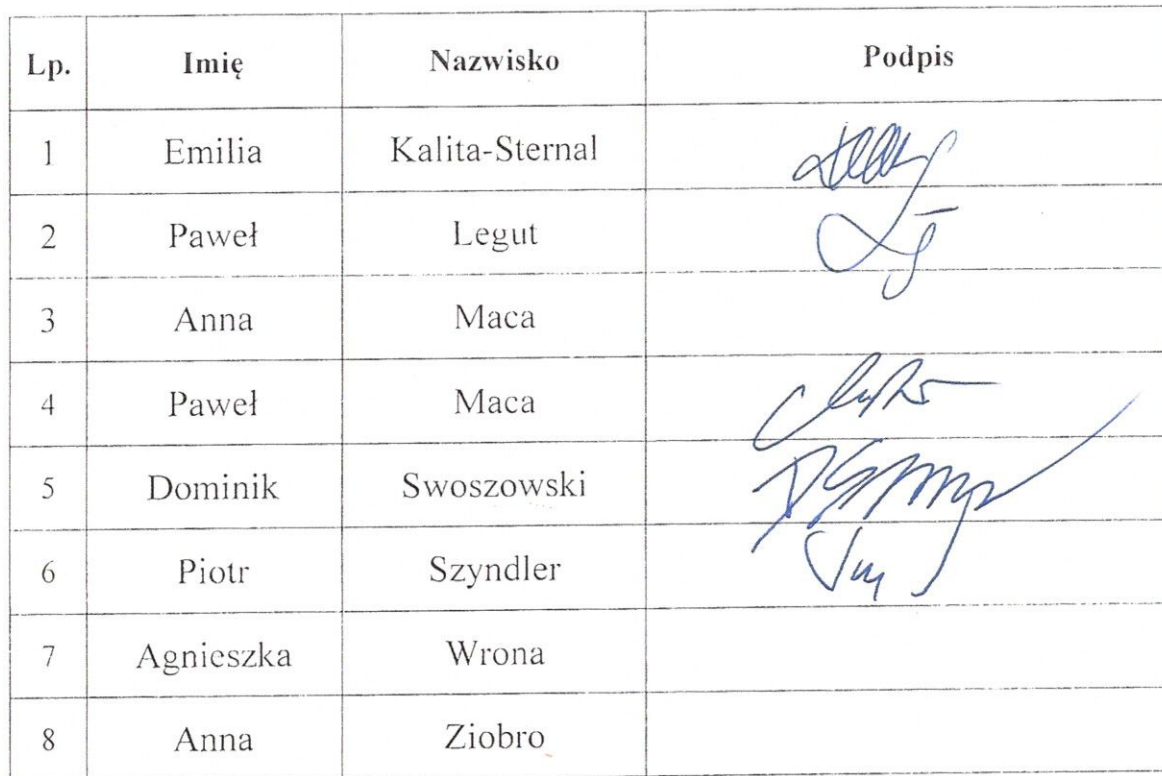 Lp. Imię Nazwisko Podpis
1 Emilia Kalita-Sternal
2 Paweł Legut
3 Anna Maca
4 Paweł Maca
5 Dominik Swoszowski
6 Piotr Szyndler
7 Agnieszka Wrona
8 Anna Ziobro